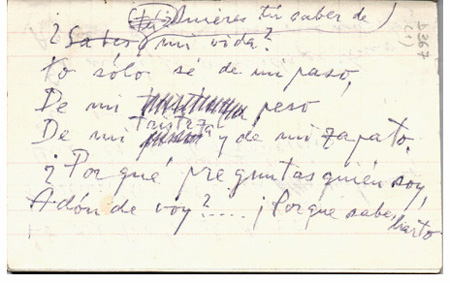 ¿Quieres tú saber de
mi vida?
Yo sólo sé de mi paso,
De mi peso
De mi tristeza y de mi zapato.
¿Por qué preguntas quién soy,
Adónde voy?..... ¡Porque sabes harto